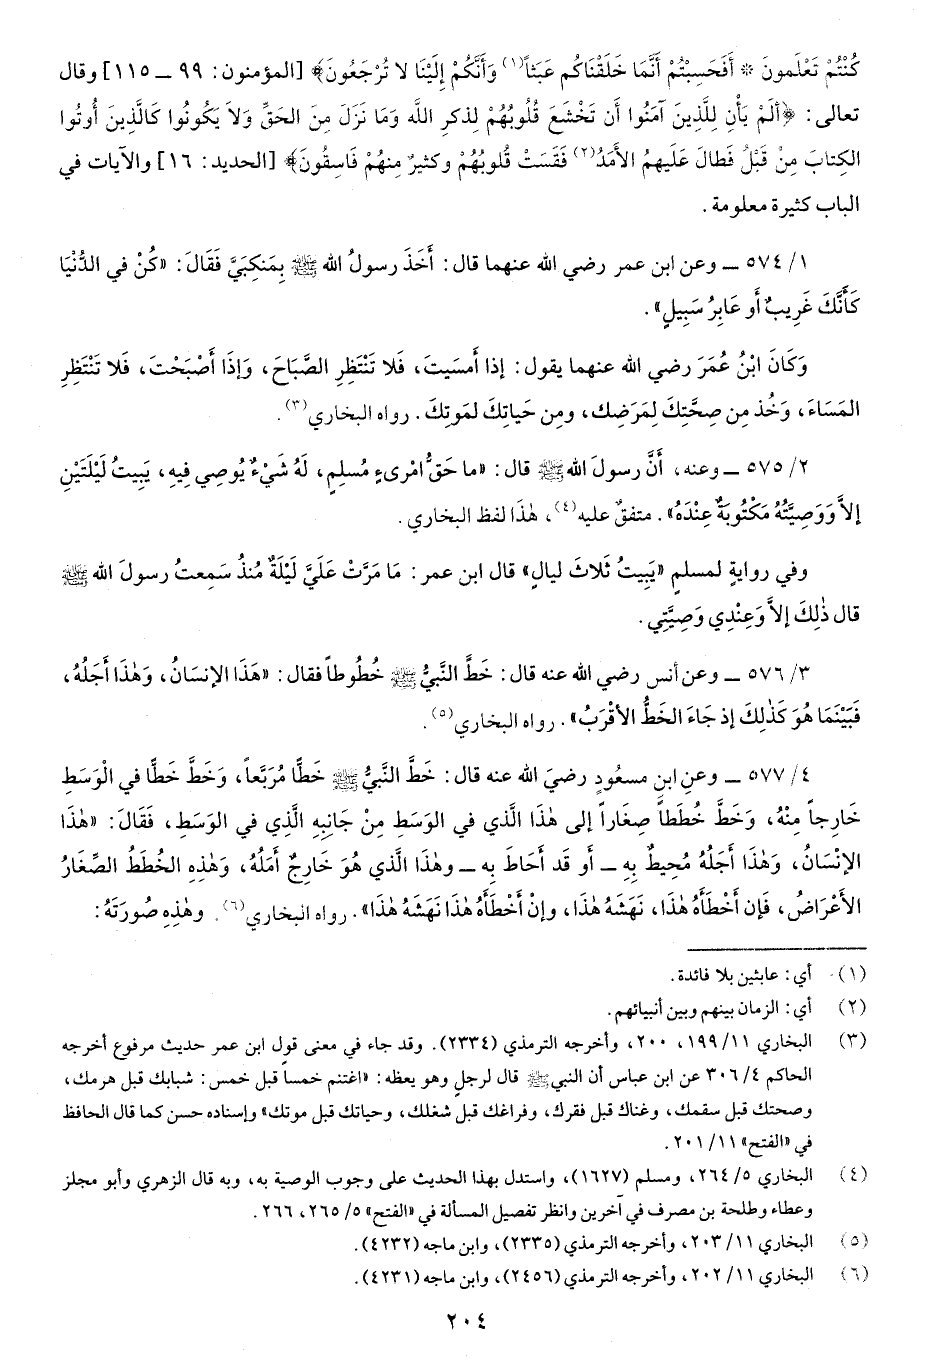 كُنْتُمْ تَعْلَمونَ * أَفَحَسِبْتُمْ أَنَّمَا خَلَقْنَاكُم عَبَثاً(١) وَأَنَّكُمْ إِلَيْنَا لا تُرْجَعُونَ﴾ [المؤمنون: ٩٩ ــ ١١٥] وقال
تعالى: ﴿أَلَمْ يَأْنِ لِلَّذِينَ آمَنُوا أَن تَخْشَعَ قُلُوبُهُمْ لِذكرِ اللَّه وَمَا نَزَلَ مِنَ الحَقِّ وَلاَ يَكُونُوا كَالَّذِينَ أُوتُوا
الكِتابَ مِنْ قَبْلُ فَطالَ عَلَيهِمُ الأَمَدُ(٢) فَقَسَتْ قُلوبُهُمْ وكثيرٌ مِنهُمْ فَاسِقُونَ﴾ [الحديد: ١٦] والآيات في
الباب كثيرة معلومة.
١/ ٥٧٤ ــ وعن ابن عمر رضي الله عنهما قال: أَخَذَ رسولُ الله ﷺ بِمَنكِبَيَّ فَقَالَ: «كُنْ في الدُّنْيَا
كَأَنَّكَ غَرِيبٌ أَو عَابِرُ سَبِيلٍ».
وَكَانَ ابْنُ عُمَرَ رضي الله عنهما يقول: إذا أَمسَيتَ، فَلا تَنْتَظِرِ الصَّبَاحَ، وَإِذَا أَصْبَحْتَ، فَلا تَنْتَظِرِ
المَسَاءَ، وَخُذ مِن صِحَّتِكَ لِمَرَضِك، ومِن حَيَاتِكَ لمَوتِكَ. رواه البخاري(٣).
٢/ ٥٧٥ ــ وعنه، أَنَّ رسولَ الله ﷺ قال: «ما حَقُّ امْرىءٍ مُسلِمٍ، لَهُ شَيْءٌ يُوصِي فِيهِ، يَبِيتُ لَيْلَتَيْنِ
إلاَّ وَوَصِيَّتُهُ مَكْتُوبَةٌ عِنْدَهُ». متفقٌ عليه(٤)، هٰذَا لفظ البخاري.
وفي روايةٍ لمسلمٍ «يَبِيتُ ثَلاثَ ليالٍ» قال ابن عمر: مَا مَرَّتْ عَلَيَّ لَيْلَةٌ مُنذُ سَمِعتُ رسولَ الله ﷺ
قال ذٰلِكَ إلاَّ وَعِنْدِي وَصِيَّتِي.
٣/ ٥٧٦ ــ وعن أنس رضي الله عنه قال: خَطَّ النَّبيُّ ﷺ خُطُوطاً فقال: «هَذَا الإنسَانُ، وَهٰذَا أَجَلُهُ،
فَبَيْنَمَا هُوَ كَذٰلِكَ إذ جَاءَ الخَطُّ الأَقْرَبُ». رواه البخاري(٥).
٤/ ٥٧٧ ــ وعنِ ابن مسعُودٍ رضيَ الله عنه قال: خَطَّ النَّبيُّ ﷺ خَطًّا مُرَبَّعاً، وَخَطَّ خَطًّا في الْوَسَطِ
خَارِجاً مِنْهُ، وَخَطَّ خُطَطاً صِغَاراً إلى هٰذَا الَّذي في الوَسَط مِنْ جَانِبِه الَّذِي في الوَسَطِ، فَقَالَ: «هٰذَا
الإنْسَانُ، وَهٰذَا أَجَلُهُ مُحِيطٌ بِهِ ــ أَو قَد أَحَاطَ بِه ــ وهٰذَا الَّذي هُوَ خَارِجٌ أَمَلُهُ، وَهٰذِهِ الخُطَطُ الصِّغَارُ
الأَعْرَاضُ، فَإن أَخْطَأَهُ هٰذَا، نَهَشَهُ هٰذَا، وإنْ أَخْطَأَهُ هٰذَا نَهَشَهُ هٰذَا». رواه البخاري(٦). وهٰذِهِ صُورَتَهُ:
(١) أي: عابثين بلا فائدة.
(٢) أي: الزمان بينهم وبين أنبيائهم.
(٣) البخاري ١١/ ١٩٩، ٢٠٠، وأخرجه الترمذي (٢٣٣٤). وقد جاء في معنى قول ابن عمر حديث مرفوع أخرجه
الحاكم ٤/ ٣٠٦ عن ابن عباس أن النبي ﷺ قال لرجلٍ وهو يعظه: «اغتنم خمساً قبل خمس: شبابك قبل هرمك،
وصحتك قبل سقمك، وغناك قبل فقرك، وفراغك قبل شغلك، وحياتك قبل موتك» وإسناده حسن كما قال الحافظ
في «الفتح» ١١/ ٢٠١.
(٤) البخاري ٥/ ٢٦٤، ومسلم (١٦٢٧)، واستدل بهذا الحديث على وجوب الوصية به، وبه قال الزهري وأبو مجلز
وعطاء وطلحة بن مصرف في آخرين وانظر تفصيل المسألة في «الفتح» ٥/ ٢٦٥، ٢٦٦.
(٥) البخاري ١١/ ٢٠٣، وأخرجه الترمذي (٢٣٣٥)، وابن ماجه (٤٢٣٢).
(٦) البخاري ١١/ ٢٠٢، وأخرجه الترمذي (٢٤٥٦)، وابن ماجه (٤٢٣١).
٢٠٤